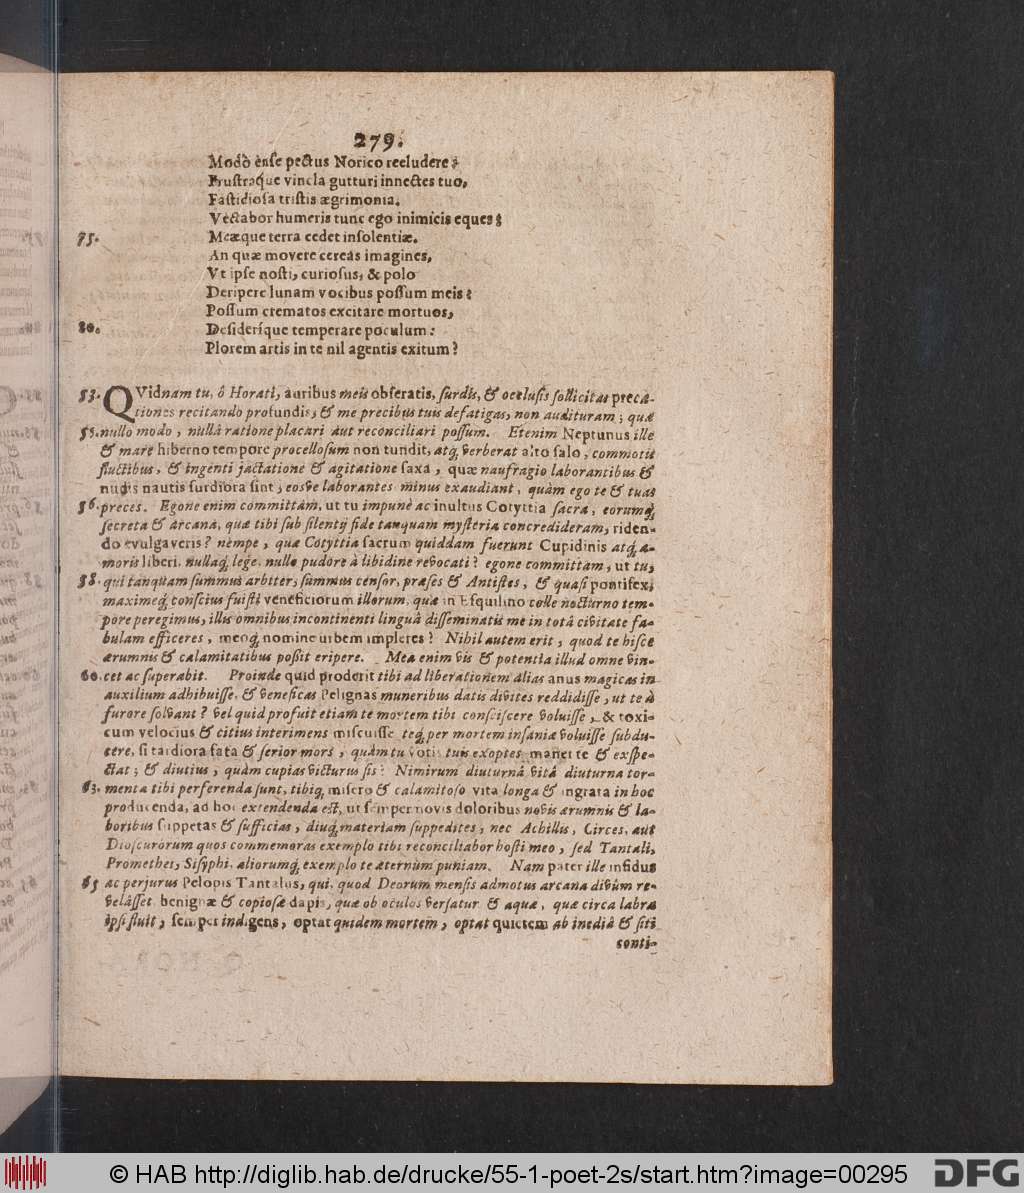 279.
Modò ènse pectus Norico recludere;
Frustraque vincla gutturi innectes tuo,
Fastidiosa tristis ægrimonia.
Vectabor humeris tunc ego inimicis eques;
75. Meæque terra cedet insolentiæ.
An quæ movere cereas imagines,
Vt ipse nosti, curiosus, & polo
Deripere lunam vocibus possum meis;
Possum crematos excitare mortuos,
80. Desiderîque temperare poculum:
Plorem artis in te nil agentis exitum?
53. QVidnam tu, ô Horati, auribus meis obseratis, surdis, & occlusis sollicitas preca-
tiones recitando profundis, & me precibus tuis defatigas, non audituram; quæ
55. nullo modo, nullâ ratione placari aut reconciliari possum. Etenim Neptunus ille
& mare hiberno tempore procellosum non tundit, atq; verberat alto salo, commotis
fluctibus, & ingenti jactatione & agitatione saxa, quæ naufragio laborantibus &
nudis nautis surdiora sint, eosve laborantes minus exaudiant, quàm ego te & tuas
56. preces. Egone enim committam, ut tu impunè ac inultus Cotyttia sacra, eorumq;
secreta & arcana, quæ tibi sub silentij fide tanquam mysteria concredideram, riden-
do evulgaveris? nempe, quæ Cotyttia sacrum quiddam fuerunt Cupidinis atq; a-
moris liberi, nullaq; lege, nullo pudore à libidine revocati? egone committam, ut tu,
58. qui tanquam summus arbiter, summus censor, præses & Antistes, & quasi pontifex,
maximeq; conscius fuisti veneficiorum illorum, quæ in Esquilino colle nocturno tem-
pore peregimus, illis omnibus incontinenti linguâ disseminatis me in totâ civitate fa-
bulam efficeres, meoq; nomine urbem impleres? Nihil autem erit, quod te hisce
ærumnis & calamitatibus possit eripere. Mea enim vis & potentia illud omne vin-
60. cet ac superabit. Proinde quid proderit tibi ad liberationem alias anus magicas in
auxilium adhibuisse, & veneficas Pelignas muneribus datis divites reddidisse, ut te à
furore solvant? vel quid profuit etiam te mortem tibi consciscere voluisse, & toxi-
cum velocius & citius interimens miscuisse, teq; per mortem insaniæ voluisse subdu-
cere, si tardiora fata & serior mors, quàm tu votis tuis exoptes, manet te & exspe-
ctat; & diutius, quàm cupias victurus sis? Nimirum diuturnâ vitâ diuturna tor-
63. menta tibi perferenda sunt, tibiq; misero & calamitoso vita longa & ingrata in hoc
producenda, ad hoc extendenda est, ut semper novis doloribus novis ærumnis & la-
boribus suppetas & sufficias, diuq; materiam suppedites, nec Achillis, Circes, aut
Dioscurorum quos commemoras exemplo tibi reconciliabor hosti meo, sed Tantali,
Promethei, Sisyphi, aliorumq; exemplo te æternùm puniam. Nam pater ille infidus
65 ac perjurus Pelopis Tantalus, qui, quod Deorum mensis admotus arcana divûm re-
velâsset, benignæ & copiosæ dapis, quæ ob oculos versatur & aquæ, quæ circa labra
ipsi fluit, semper indigens, optat quidem mortem, optat quietem ab inediâ & siti
conti-
© HAB http://diglib.hab.de/drucke/55-1-poet-2s/start.htm?image=00295
DFG